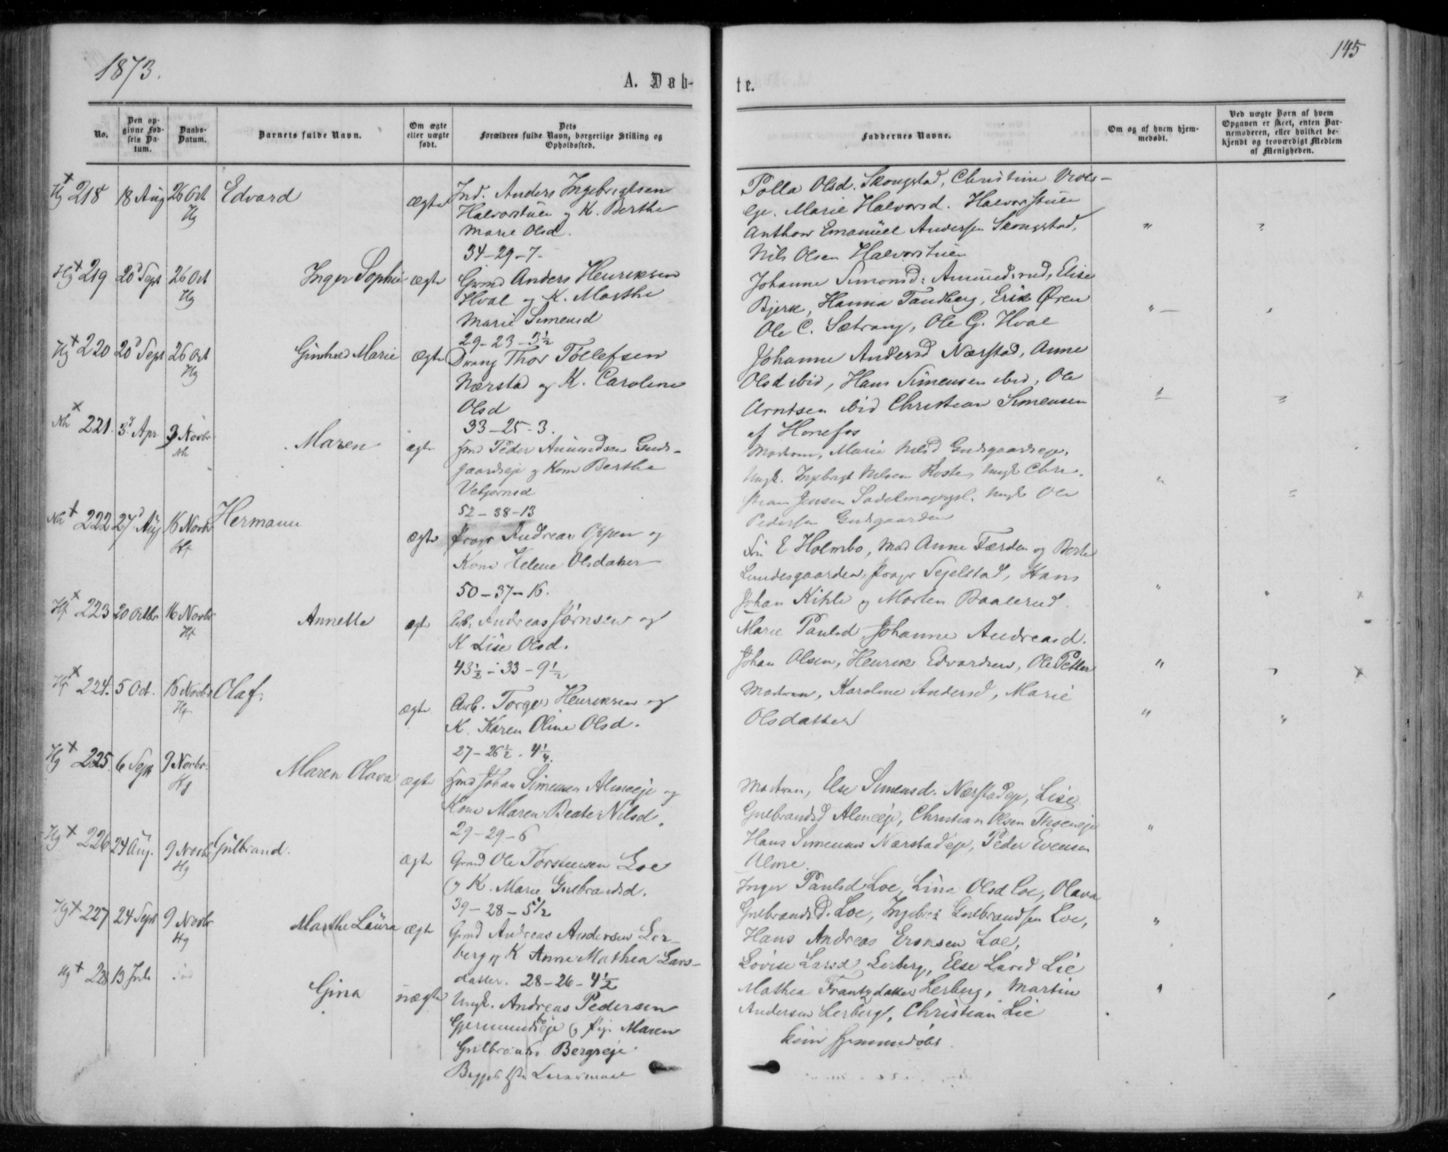 1873.
145
A. Døb-
te.
No.
Den op-
givne Fød-
sels Da-
tum.
Daabs-
Datum.
Barnets fulde Navn.
Om ægte
eller uægte
født.
Dets
Forældres fulde Navn, borgerlige Stilling og
Opholdssted.
Faddernes Navne.
Om og af hvem hjem-
medøbt.
Ved uægte Børn af hvem
Opgaven er skeet, enten Bar-
nemoderen, eller hvilket be-
kjendt og troværdigt Medlem
af Menigheden.
Hg + 218 18 Aug 26 Oct Edvard ægte Ind. Anders Ingebrigtsen
Hg Halvorstuen og K. Berthe
Marie Olsd.
34-29-7.
Polla Olsd. Skougstad, Christine
Marie Halvorsd. Halvorstuen
Anthon Emanuel Andersen Skougstad,
Nils Olsen Halvorstuen
Hg + 219 20 Sept 26 Oct Inger Sophie ægte Grmd Anders Henriksen
Hg Hval og K. Marthe
Marie Simensd
29-23-3½
Johanne Simonsd. Amundsrud, Elise
Bjerk, Hanna Tandberg, Erik Øren
Ole C. Sætrang, Ole G. Hval
Hg + 220 20 Sept 26 Oct Ginhild Marie ægte Thor Tollefsen
Hg Nærstad og K. Caroline
Olsd
33-25-3.
Johanne Andersd Nærstad, Anne
Olsd ibid, Hans Simensen ibid, Ole
Arntsen ibid Christian Simensen
af Hønefos
Nh + 221 3 Apr 9 Novbr Maren ægte Peder Amundsen Guds-
Nh gaardseje og Kone Berthe
Vebjørnsd
52-38-13
Modren, Marie Nilsd Gudsgaardseje,
Ungk. Ingebrigt Nilsen Ungk Chri-
stian Jensen Ungk Ole
Pedersen Gudsgaarden
Nh + 222 27 Aug 16 Novbr Hermann ægte Andreas Oppen og
Hf Kone Helene Olsdatter
50-37-16.
E Holmbo, Mad Anne Færden og
Lundesgaarden, Hans
Johan Kihle og Morten Baalerud.
Hf + 223 20 Octbr 16 Novbr Annette ægte Arb. Andreas Jørnsen og
Hf K Lise Olsd.
43½-33-9½
Marie Paulsd Johanne Andreasd.
Johan Olsen, Henrik Edvardsen, Ole Petter
Hf + 224. 5 Oct. 16 Novbr Olaf. ægte Arb. Torger Henriksen og
Hg K. Karen Oline Olsd.
27-26½-4¼.
Modren, Karoline Andersd, Marie
Olsdatter
Hg + 225 6 Sept 9 Novbr. Maren Olava ægte Johan Simensen Almeeje og
Hg Kone Maren Beate Nilsd.
29-29-6
Modren, Else Simensd. Nærstadeje, Lise
Gulbrandsd Almeeje, Christian Olsen
Hans Simensen Nærstadeje, Peder Evensen
Alme.
Hg + 226 24 Aug. 9 Novbr Gulbrand. ægte Grmd Ole Torstensen Loe
Hg og K. Marie Gulbrandsd.
39-28-5½
Inger Paulsd Loe, Lina Olsd Loe, Olava
Gulbrandsd. Loe, Ingebr. Gulbrandsen Loe,
Hans Andreas Eriksen Loe,
Hg + 227 24 Sept 9 Novbr Marthe Laura ægte Grmd Andreas Andersen Ler-
Hg berg og K Anne Mathea Lars-
datter. 28-26-4½
Lovise Larsd Lerberg, Else Larsd Lie
Mathea Frantzdatter Lerberg, Martin
Andersen Lerberg, Christian Lie
Hg + 28 13 Juli Gina uægte Ungk. Andreas Pedersen
Gjermundboeje og Pige Maren
Gulbrands. Bergseje
kun hjemmedøbt